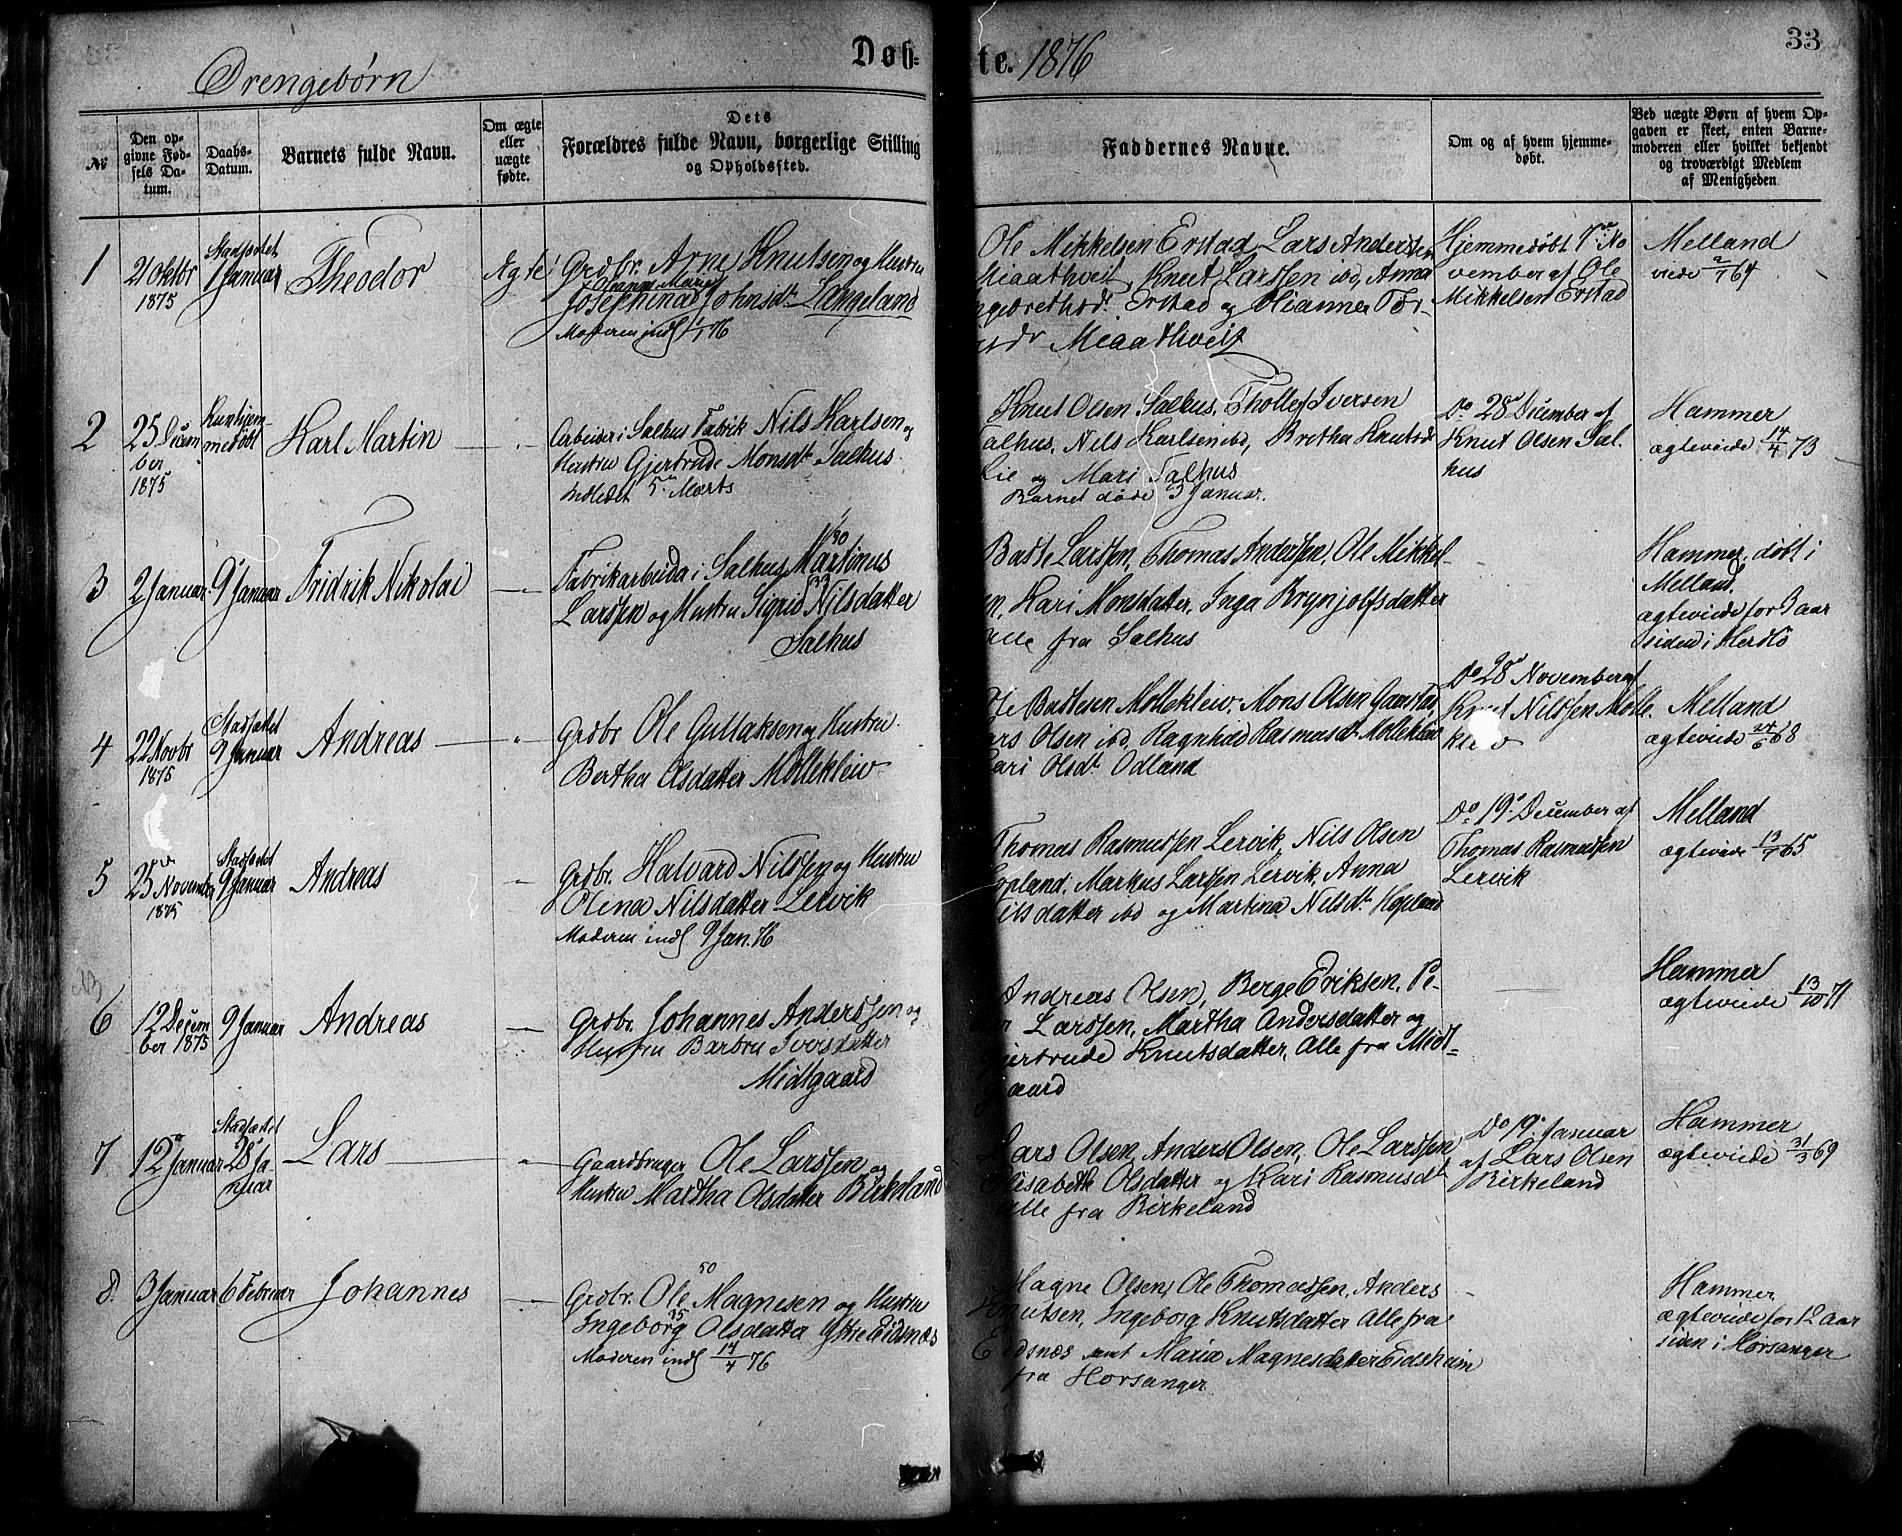 Drengebørn
Døb=
te. 1876
33
№
Den op-
givne Fød-
sels Da-
tum.
Daabs-
Datum.
Barnets fulde Navn.
Om ægte
eller
uægte
fødte.
Dets
Forældres fulde Navn, borgerlige Stilling
og Opholdssted.
Faddernes Navne.
Om og af hvem hjemme-
døbt.
Ved uægte Børn af hvem Op-
gaven er skeet, enten Barne-
moderen eller hvilket bekjendt
og troværdigt Medlem
af Menigheden
1
21 Oktbr
1875
Stadfæstet
1 Januar
Theodor
Ægte
Grdbr. Arne Knutsen og Hustru
Josephina Johnsdt. Langeland
Moderen indl
Ole Mikkelsen Erstad, Lars Andersen
Miaathveit, Knut Larssen ibd, Anna
Erstad og
Miaathveit
Hjemmedøbt 7de No
vember af Ole
Mikkelsen Erstad
Melland
viede 2/1 64
2
25 Decem
ber
1875
Kun hjem-
medøbt
Karl Martin
Arbeider i Salhus Fabrik Nils Karlsen og
Hustru Gjertrude Monsdt. Salhus.
Indledet 5te Marts
Knut Olsen Salhus, Thollef Iversen
Salhus, Nils Karlsen ibd, Bretha Knutsdt
Lie og Mari Salhus
Barnet døde 3 Januar.
Do 28d December af
Knut Olsen Sal-
hus
Hammer
ægteviede 14/4 73
3
2 Januar
9 Januar
Fridrik Nikolai
30
Fabrikarbeider i Salhus Martinus
33
Larssen og Hustru Sigrid Nilsdatter
Salhus
Baste Larssen, Thomas Anderssen, Ole Mikkel-
en, Kari Monsdatter, Inga Brynjolfsdatter
alle fra Salhus
Hammer, døbt i
Melland.
ægteviede for 3 aar
siden i Herslø
4
22 Novbr
1875
Stadfæstet
9 Januar
Andreas
Grdbr Ole Gullaksen og Hustru
Bertha Olsdatter Mollekleiv
Ole Bastesen Mollekleiv, Mons Olsen
Lars Olsen ibd, Ragnhild Rasmusdt. Mollekleiv
Kari Olsdt. Odland
Do 28d November af
Knut Nilssen Molle-
kleiv
Melland
ægteviede 24/6 68
5
25 November
1875
Stadfæstet
9 Januar
Andreas
Grdbr. Halvard Nilssen og Hustru
Olena Nilsdatter Lervik
Moderen indl 9 Jan. 76
Thomas Rasmussen Lervik, Nils Olsen
Hopland, Markus Larssen Lervik, Anna
Nilsdatter ibd og Martina Nilsdt. Hopland
Do 19de December af
Thomas Rasmussen
Lervik
Melland
ægteviede 65
NB
6
12 Decem
ber 1875
9 Januar
Andreas
Grdbr. Johannes Anderssen og
Hustru Barbru Iversdatter
Midtgaard
Andreas Olsen, Berge Eriksen, Pe-
der Larssen, Martha Andersdatter og
Gjertrude Knutsdatter, Alle fra Midt-
gaard
Hammer
ægteviede 13/10 71
7
12 Januar
Stadfæstet
28 Ja-
nuar
Lars
Gaardbruger Ole Larssen og
Hustru Martha Olsdatter Birkeland
Lars Olsen, Anders Olsen, Ole Larssen
Elisabeth Olsdatter og Kari Rasmusdt
alle fra Birkeland
Do 19de Januar
af Lars Olsen
Birkeland
Hammer
ægteviede 31/3 69
8.
3 Januar
6 Februar
Johannes
50
Grdbr. Ole Magnesen og Hustru
35
Ingeborg Olsdatter Ystre Eidsnæs
Moderen indl 14/4 76
Magne Olsen, Ole Thomassen, Anders
Knutsen, Ingeborg Knutsdatter Alle fra
Eidsnæs samt Maria Magnesdatter Eidsheim
fra Horsanger.
Hammer
ægteviede for 12 aar
siden i Horsanger